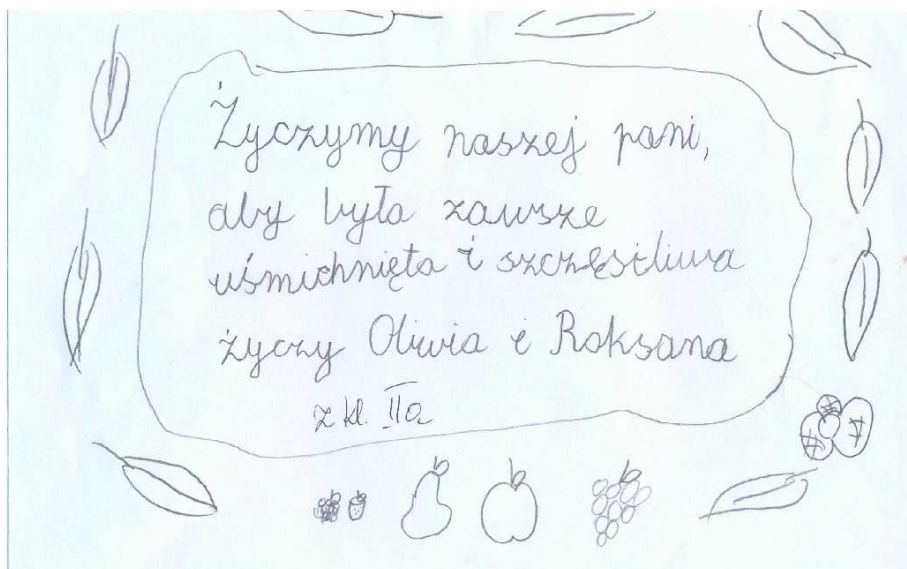 Życzymy naszej pani,
aby była zawsze
uśmichnięta i szczęśliwa
życzy Oliwia i Roksana
z kl. IIa